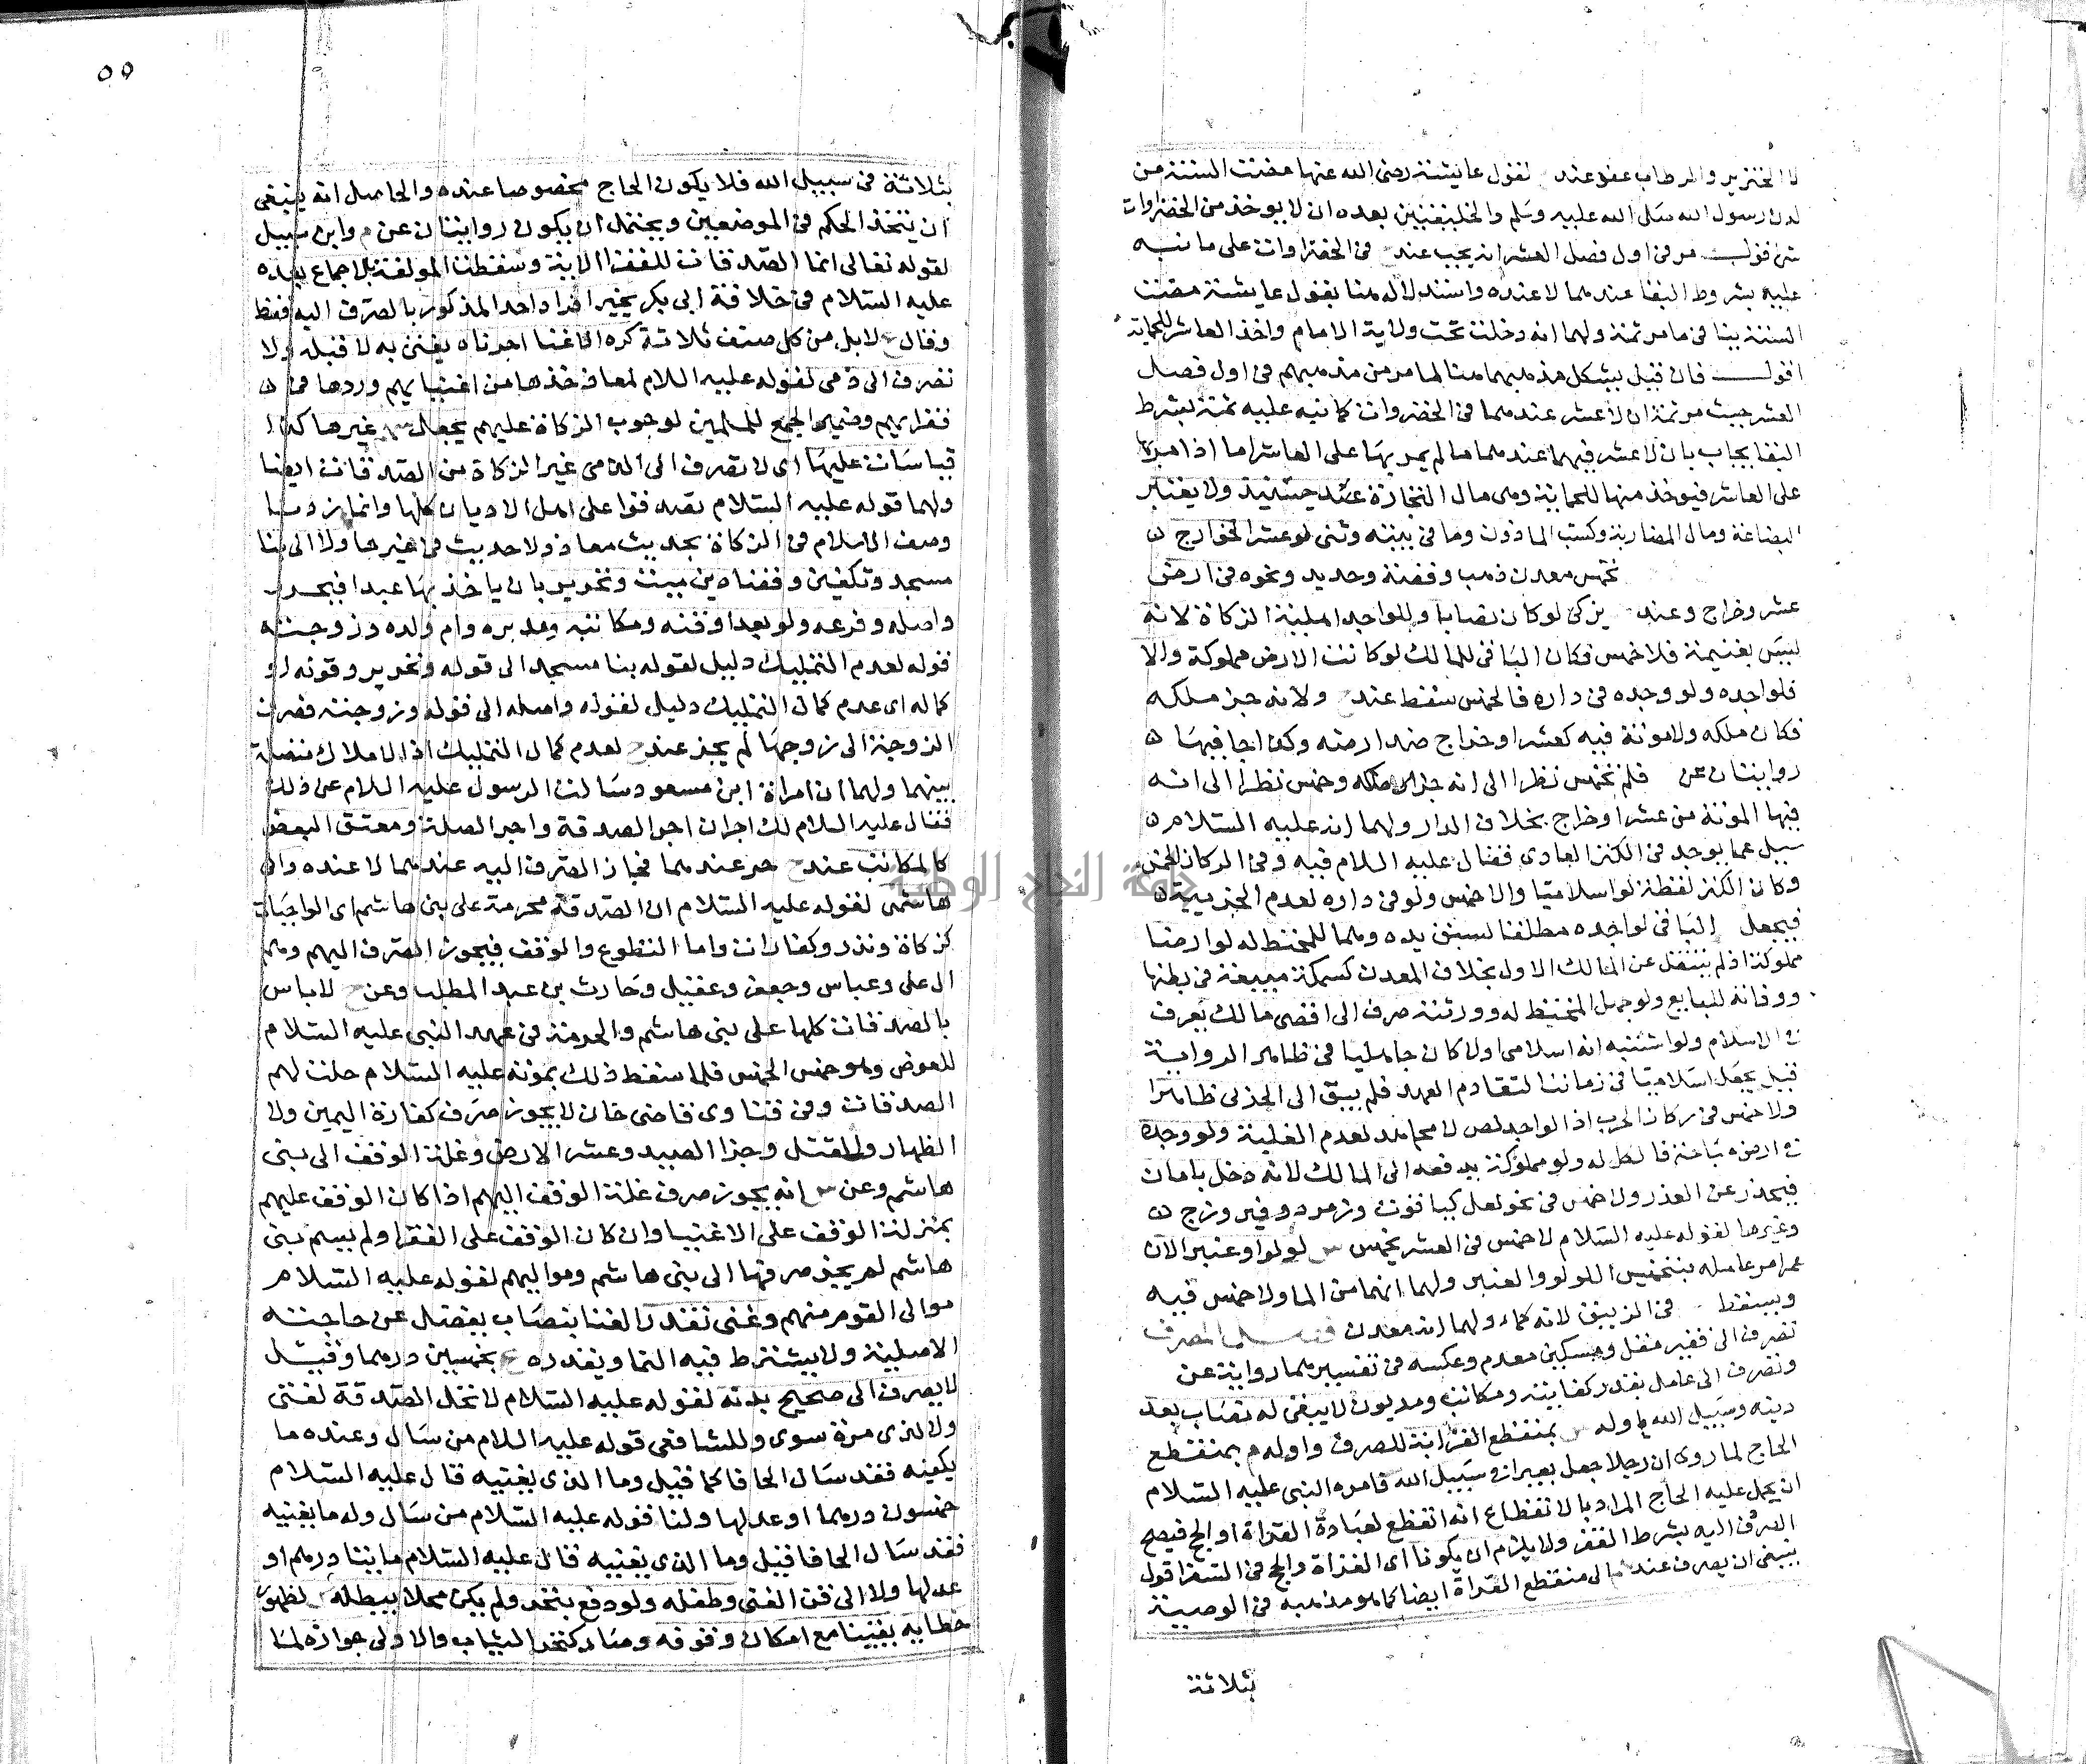 لقول عايشة رضى الله عنها مضت السنة من
لدن رسول الله صلى الله عليه وسلم والخليفتين بعده ان لا يوخذ من الخضراوات
مر فى اول فصل العشر انه يجب عند فى الخضراوات على ما نبه
عليه بشروط البقا عندهما لا عنده واستدلاله هنا بقول عايشة مضت
السنة ينافى ما مر ثمة ولهما انه دخلت تحت ولاية الامام واخذ العاشر للحماية
اقول فان قيل يشكل مذهبهما هنا لما مر من مذهبهم فى اول فصل
العشر حيث مر ثمة ان لا عشر عندهما فى الخضروات كما نبه عليه ثمة بشرط
البقا يجاب بان لا عشر فيهما عندهما ما لم يمر بها على العاشر اما اذا مر بها
على العاشر فيوخذ منها للحماية وهى مال التجارة عنده حينئذ ولا يعتبر
البضاعة ومال المضاربة وكسب الماذون وما فى بيته وثنى لو عشر الخوارج
خمس معدن ذهب وفضة وحديد ونحوه فى ارض
عشر وخراج وعند يزكى لو كان نصابا وللواجد اهلية الزكاة لانه
ليس بغنيمة فلا خمس فكان الباقى للمالك لو كانت الارض مملوكة والا
فلواجده ولو وجده فى داره فالخمس سقط عند ولانه جزء ملكه
فكان ملكه ولا مونة فيه كعشر او خراج ضد ارضه وكذا جا فيها
روايتان عن فلم تخمس نظرا الى انه جزء ملكه وخمس نظرا الى انه
فيها المونة من عشر او خراج بخلاف الدار ولهما انه عليه السلام
سيل عما يوجد فى الكنز العادى فقال عليه السلام فيه وفى الركاز الخمس
وكان الكنز لقطة لو اسلاميا والا خمس ولو فى داره لعدم الجزيية
فيجعل الباقى لواجده مطلقا لسبق يده وهما للمختط له لو ارضا
مملوكة اذ لم ينتقل عن المالك الاول بخلاف المعدن كسمكة مبيعة فى بطنها
ووفاته للبايع ولو جهل المختط له وورثته صرف الى اقصى مالك يعرف
فى الاسلام ولو اشتبه انه اسلامى او لا كان جاهليا فى ظاهر الرواية
قيل يجعل اسلاميا فى زماننا لتقادم العهد فلم يبق الى الجذلى ظاهرا
ولا خمس فى ركاز الحرب اذ الواجد لص لا مجاهد لعدم الغلبة ولو وجده
فى ارضه مباحة فالكل له ولو مملوكة يدفعه الى المالك لانه دخل بامان
فيحذر عن الغدر ولا خمس فى نحو لعل كياقوت وزمرد وفيروزج
وغيرها لقوله عليه السلام لا خمس فى العشر يخمس س لولوا وعنبرا لان
عمر امر عامله بتخميس اللولو والعنبر ولهما انهما من الما ولا خمس فيه
ويسقط فى الزيبق لانه كماء ولهما انه معدن فصل المصرف
تصرف الى فقير مقل ومسكين معدم وعكسه فى تفسيرهما رواية عن
وتصرف الى عامل بقدر كفايته ومكاتب ومديون لا يبقى له نصاب بعد
دينه وسبيل الله اوله س بمنقطع الغزاة للصرف واوله م بمنقطع
الحاج لما روى ان رجلا جعل بعيرا فى سبيل الله فامره النبى عليه السلام
ان يحمل عليه الحاج المراد بالانقطاع انه انقطع لعبادة الغزاة او الحج فيصح
الصرف اليه بشرط الفقر ولا يلزم ان يكونا اى الغزاة والحج فى السفر اقول
ينبغى ان يصرف عند الى منقطع الغزاة ايضا كما هو مذهبه فى الوصية
بثلاثة
٥٥
بثلاثة فى سبيل الله فلا يكون الحاج مخصوصا عنده والحاصل انه ينبغى
ان يتخذ الحكم فى الموضعين ويحتمل ان يكون روايتان عن م وابن سبيل
لقوله تعالى انما الصدقات للفقرا الاية وسقطت المولفة بالاجماع بعده
عليه السلام فى خلافة ابى بكر يخير افراد احد المذكور بالصرف اليه فقط
وقال لا بل من كل صنف ثلاثة كره الاغنا اجزناه يغنى به لا قبله ولا
تصرف الى ذمى لقوله عليه السلام لمعاذ خذها من اغنيايهم وردها فى
فقرايهم وضمير الجمع للمسلمين لوجوب الزكاة عليهم يجعل س غيرها كذا
قياسات عليها اى لا تصرف الى الذمى غير الزكاة من الصدقات ايضا
ولهما قوله عليه السلام تصدقوا على اهل الاديان كلها وانما زدنا
وصف الاسلام فى الزكاة بحديث معاذ ولا حديث فى غيرها ولا الى بنا
مسجد وتكفين وقضاء دين ميت وتحرير بان ياخذ بها عبدا فيحرر
واصله وفرعه ولو بعدا وقنه ومكاتبه ومدبره وام ولده وزوجته
قوله لعدم التمليك دليل لقوله بنا مسجد الى قوله وتحرير وقوله او
كماله اى عدم كمال التمليك دليل لقوله واصله الى قوله وزوجته فصرف
الزوجة الى زوجها لم يجز عند لعدم كمال التمليك اذ الاملاك متصلة
بينهما ولهما ان امراة ابن مسعود سالت الرسول عليه السلام عن ذلك
فقال عليه السلام لك اجران اجر الصدقة واجر الصلة ومعتق البعض
كالمكاتب عند حر عندهما فجاز الصرف اليه عندهما لا عنده والى
هاشمى لقوله عليه السلام ان الصدقة محرمة على بنى هاشم اى الواجبات
كزكاة ونذر وكفارات واما التطوع والوقف فيجوز الصرف اليهم وهم
ال على وعباس وجعفر وعقيل وحارث بن عبد المطلب وعن لا باس
بالصدقات كلها على بنى هاشم والحرمة فى عهد النبى عليه السلام
للعوض وهو خمس الخمس فلما سقط ذلك بموته عليه السلام حلت لهم
الصدقات وفى فتاوى قاضى خان لا يجوز صرف كفارة اليمين ولا
الظهار والقتل وجزا الصيد وعشر الارض وغلة الوقف الى بنى
هاشم وعن س انه يجوز صرف غلة الوقف اليهم اذا كان الوقف عليهم
بمنزلة الوقف على الاغنيا وان كان الوقف على الفقرا ولم يسم بنى
هاشم لم يجز صرفها الى بنى هاشم ومواليهم لقوله عليه السلام
موالى القوم منهم وغنى نقدر الغنا بنصاب يفضل عن حاجته
الاصلية ولا يشترط فيه النما ويقدره بخمسين درهما وقيل
لا يصرف الى صحيح بدنه لقوله عليه السلام لا تحل الصدقة لغنى
ولا لذى مرة سوى وللشافعى قوله عليه السلام من سال وعنده ما
يكفيه فقد سال الحافا كما قيل وما الذى يغنيه قال عليه السلام
خمسون درهما او عدلها ولنا قوله عليه السلام من سال وله ما يغنيه
فقد سال الحافا قيل وما الذى يغنيه قال عليه السلام مايتا درهم او
عدلها ولا الى قن الغنى وطفله ولو دفع بتحر ولم يكن محلا يبطله لظهور
خطايه يقينا مع امكان وقوفه وصار كتحر الثياب والاولى جوازه لما
جامعة النجاح الوطنية